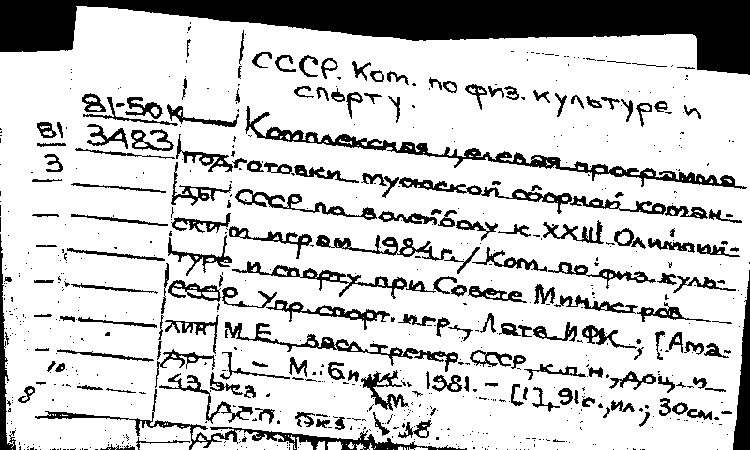 СССР. Ком. по физ. культуре и
спорту.
81-50к
3483
81
3
Комплексная целевая программа
подготовки мужской сборной коман-
ды СССР по волейболу к XXIII Олимпий-
ским играм 1984 г. / Ком. по физ. куль-
туре и спорту при Совете Министров
СССР. Упр. спорт. игр., Латв. ИФК ; [Ама-
лин М.Е., засл. тренер СССР, к.п.н., доц. и
др.]. – М. : Б.и., 1981. – [1], 91 с., ил.; 30 см. –
43 экз.
ДСП. Экз
18.
10
8
ДСП. экз